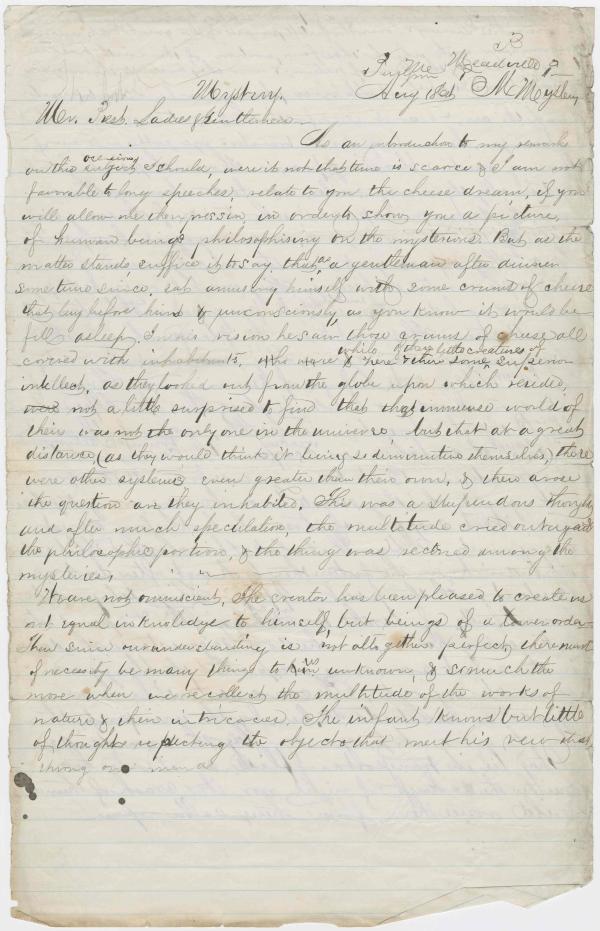 B
Meadville P
Aug 1864 Mc Mystery
Mystery.
Mr. Prest. Ladies & Gentlemen
As an introduction to my remarks
on this occasion subject I should, were it not that time is scarce & I am not
favorable to long speeches, relate to you the cheese dream, if you
will allow me in order to show you a picture
of human beings philosophising on the mysterious. But as the
matter stands suffice it to say that as a gentleman after dinner
some time since, sat amusing himself with some crumbs of cheese
that lay before him & unconsciously, as you know it would be
fell asleep. In his vision he saw those crums of cheese all
covered with inhabitants, who were while & here & there some of these little creatures of superior
intellect, as they looked out from the globe upon which resided,
were not a little surprised to find that that immense world of
their was not the only one in the universe, but that at a great
distance, (as they would think it being so diminutive themselves,) there
were other systems even greater than their own, & then arose
the question are they inhabited. This was a stupendous thought
and after much speculation, the multitude cried out against
the philosophic portion, & the thing was rectored among the
mysteries.
We are not omniscient. The creator has been pleased to create us
not equal in knowledge to himself, but beings of a lower order
Then since our understanding is not altogether perfect, there must
of necessity be many things to him us unknown, & so much the
more when we recollect the multitude of the works of
nature & their intricacies. The infant knows but little
of thought respecting the objects that meet his view that
throng our mind